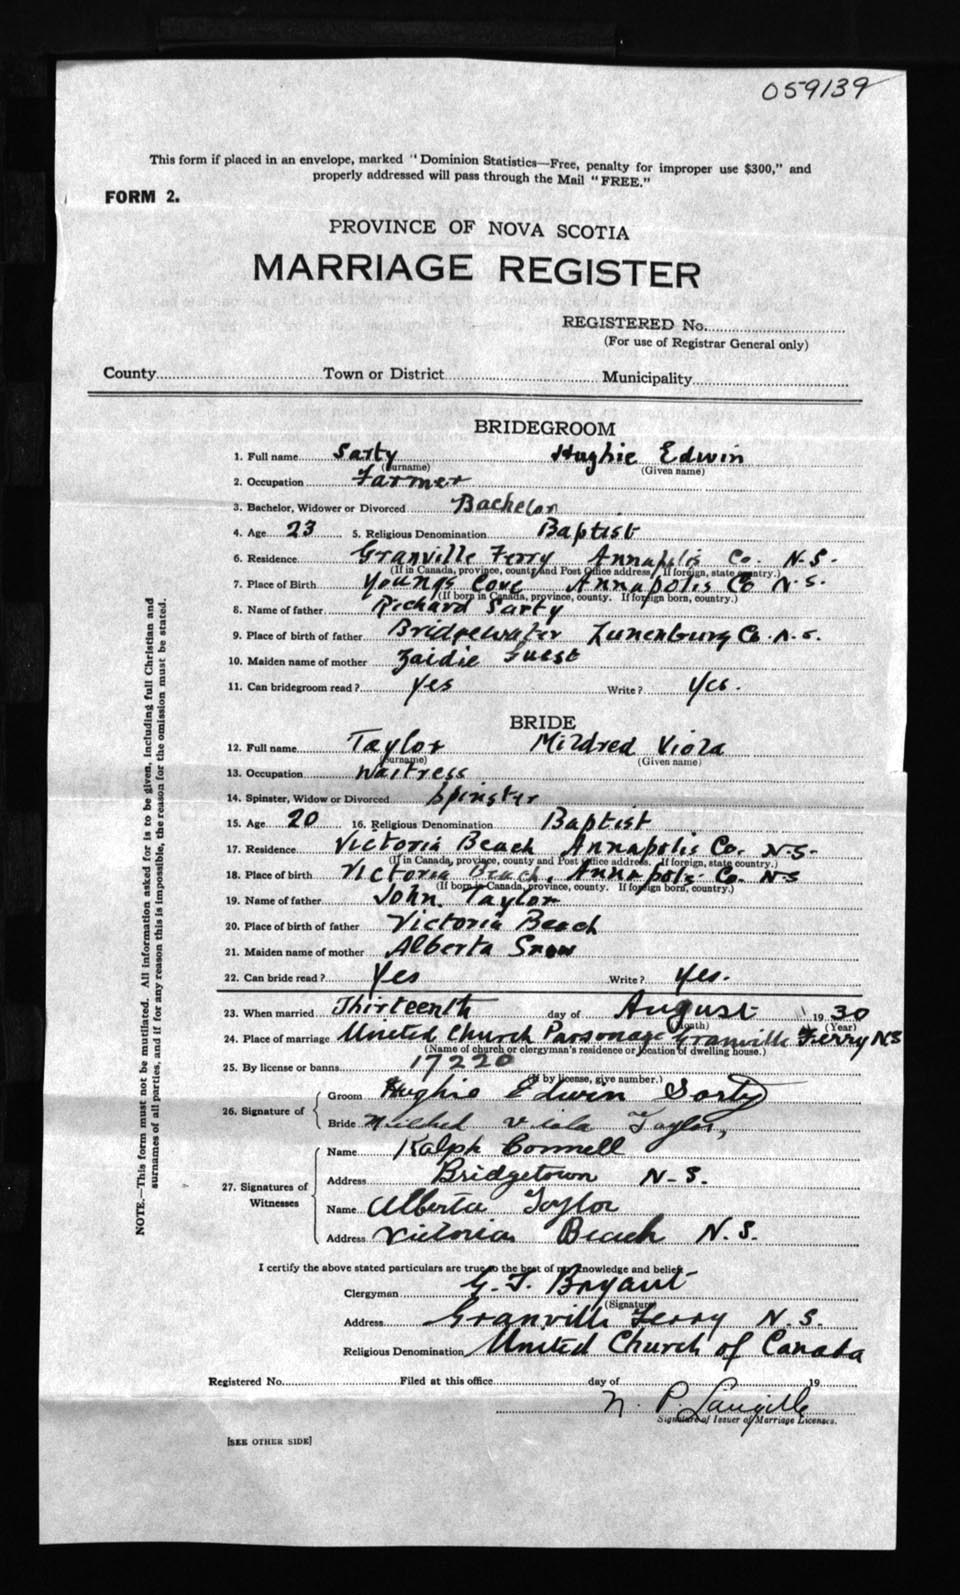 059139
This form if placed in an envelope, marked "Dominion Statistics—Free, penalty for improper use $300," and
properly addressed will pass through the Mail "FREE."
FORM 2.
PROVINCE OF NOVA SCOTIA
MARRIAGE REGISTER
REGISTERED No.
(For use of Registrar General only)
County Town or District Municipality
BRIDEGROOM
1. Full name Sarty Hughie Edwin
(Surname) (Given name)
2. Occupation Farmer
3. Bachelor, Widower or Divorced Bachelor
4. Age 23 5. Religious Denomination Baptist
6. Residence Granville Ferry Annapolis Co. N.S.
(If in Canada, province, county and Post Office address. If foreign, state country.)
7. Place of Birth Youngs Cove Annapolis Co N.S.
(If born in Canada, province, county. If foreign born, country.)
8. Name of father Richard Sarty
9. Place of birth of father Bridgewater Lunenburg Co. N.S.
10. Maiden name of mother Zaidie Guest
11. Can bridegroom read? Yes Write? Yes.
BRIDE
12. Full name Taylor Mildred Viola
(Surname) (Given name)
13. Occupation Waitress
14. Spinster, Widow or Divorced Spinster
15. Age 20 16. Religious Denomination Baptist
17. Residence Victoria Beach Annapolis Co. N.S.
(If in Canada, province, county and Post Office address. If foreign, state country.)
18. Place of birth Victoria Beach, Annapolis Co. N.S
(If born in Canada, province, county. If foreign born, country.)
19. Name of father John Taylor
20. Place of birth of father Victoria Beach
21. Maiden name of mother Alberta Snow
22. Can bride read? Yes Write? Yes.
23. When married Thirteenth day of August 19 30
(Month) (Year)
24. Place of marriage United Church Parsonage Granville Ferry N.S
(Name of church or clergyman's residence or location of dwelling house.)
25. By license or banns 17220
(If by license, give number.)
26. Signature of
Groom Hughie Edwin Sarty
Bride Mildred Viola Taylor,
27. Signatures of Witnesses
Name Ralph Connell
Address Bridgetown N.S.
Name Alberta Taylor
Address Victoria Beach N.S.
I certify the above stated particulars are true to the best of my knowledge and belief.
Clergyman G. T. Bryant
(Signature)
Address Granville Ferry N.S.
Religious Denomination United Church of Canada
Registered No. Filed at this office day of 19
N. P. Langille
Signature of Issuer of Marriage Licenses.
[SEE OTHER SIDE]
NOTE.—This form must not be mutilated. All information asked for is to be given, including full Christian and
surnames of all parties, and if for any reason this is impossible, the reason for the omission must be stated.